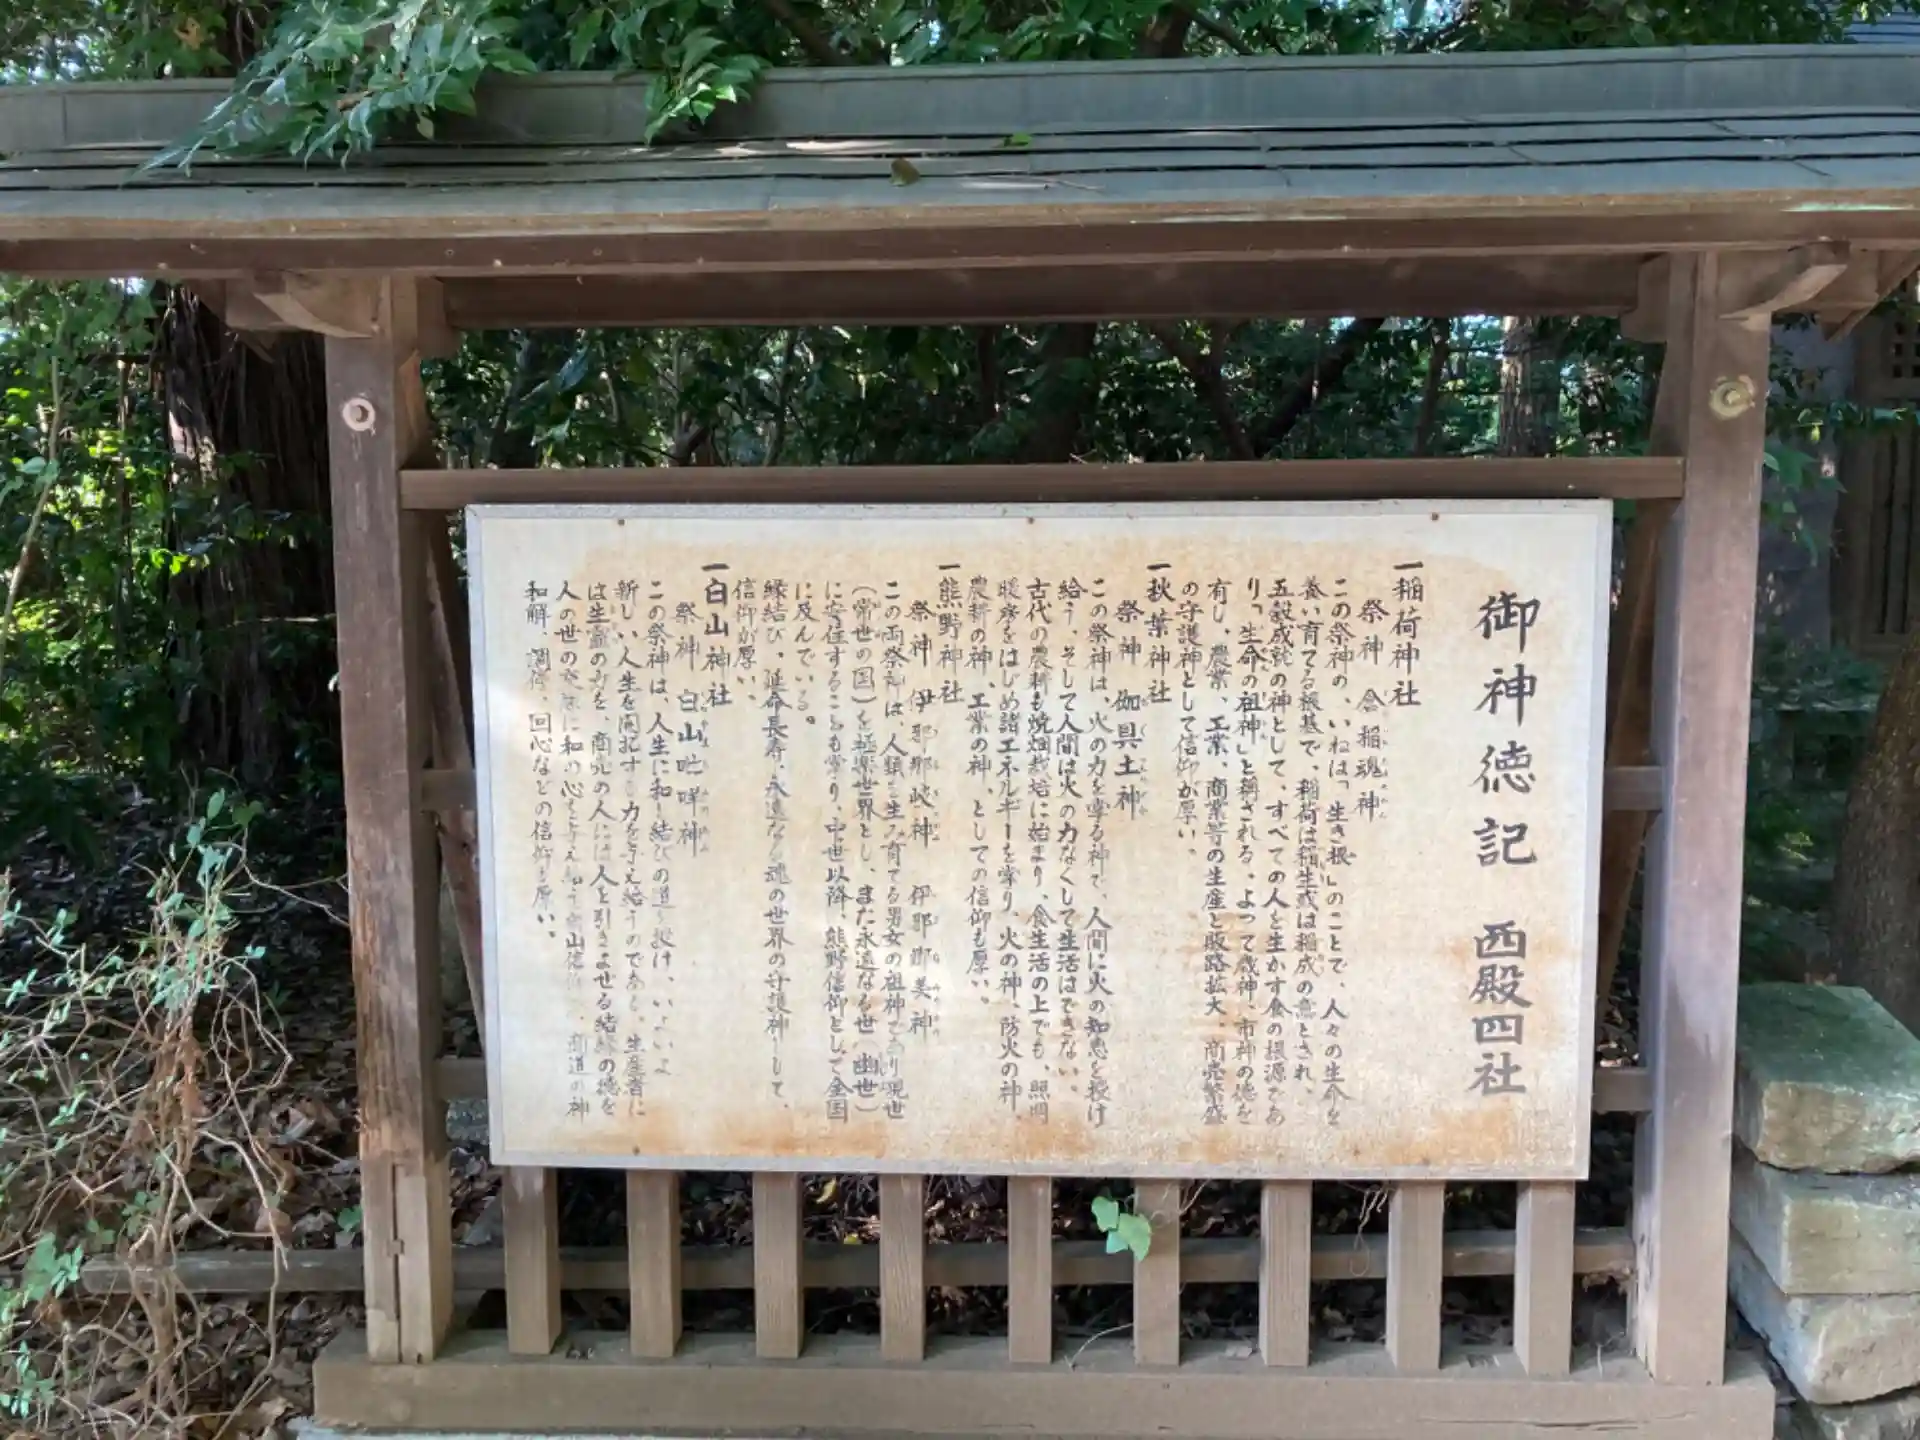 御神徳記　西殿四社
一稲荷神社
祭神　倉稲魂神
この祭神の、いねは「生き根」のことで、人々の生命を
養い育てる根基で、稲荷は稲生或は稲成の意とされ、
五穀成就の神として、すべての人を生かす食の根源であ
り「生命の祖神」と称される。よって歳神、市神の徳を
有し、農業、工業、商業等の生産と販路拡大、商売繁盛
の守護神として信仰が厚い、
一秋葉神社
祭神　伽具土神
この祭神は、火の力を掌る神で、人間に火の知恵を授け
給う、そして人間は火の力なくして生活はできない、
古代の農耕も焼畑栽培に始まり、食生活の上でも、照明
暖房をはじめ諸エネルギーを掌り、火の神、防火の神、
農耕の神、工業の神、としての信仰も厚い。
一熊野神社
祭神　伊那那岐神　伊那那美神
この両祭神は、人類を生み育てる男女の祖神であり現世
（常世の国）を極楽世界とし、また永遠なる世（幽世）
に安住することも掌り、中世以降、熊野信仰として全国
に及んでいる。
縁結び、延命長寿、永遠なる魂の世界の守護神として、
信仰が厚い、
一白山神社
祭神　白山比咩神
この祭神は、人生に和と結びの道を授け、いよいよ
新しい人生を開拓する力を与え給うのである、生産者に
は生靈のみを、商売の人には人と引きよせる結縁の徳を
人の世の に和の心を与え 山信仰 、商道の神
和解、調停、回心などの信仰も厚い、